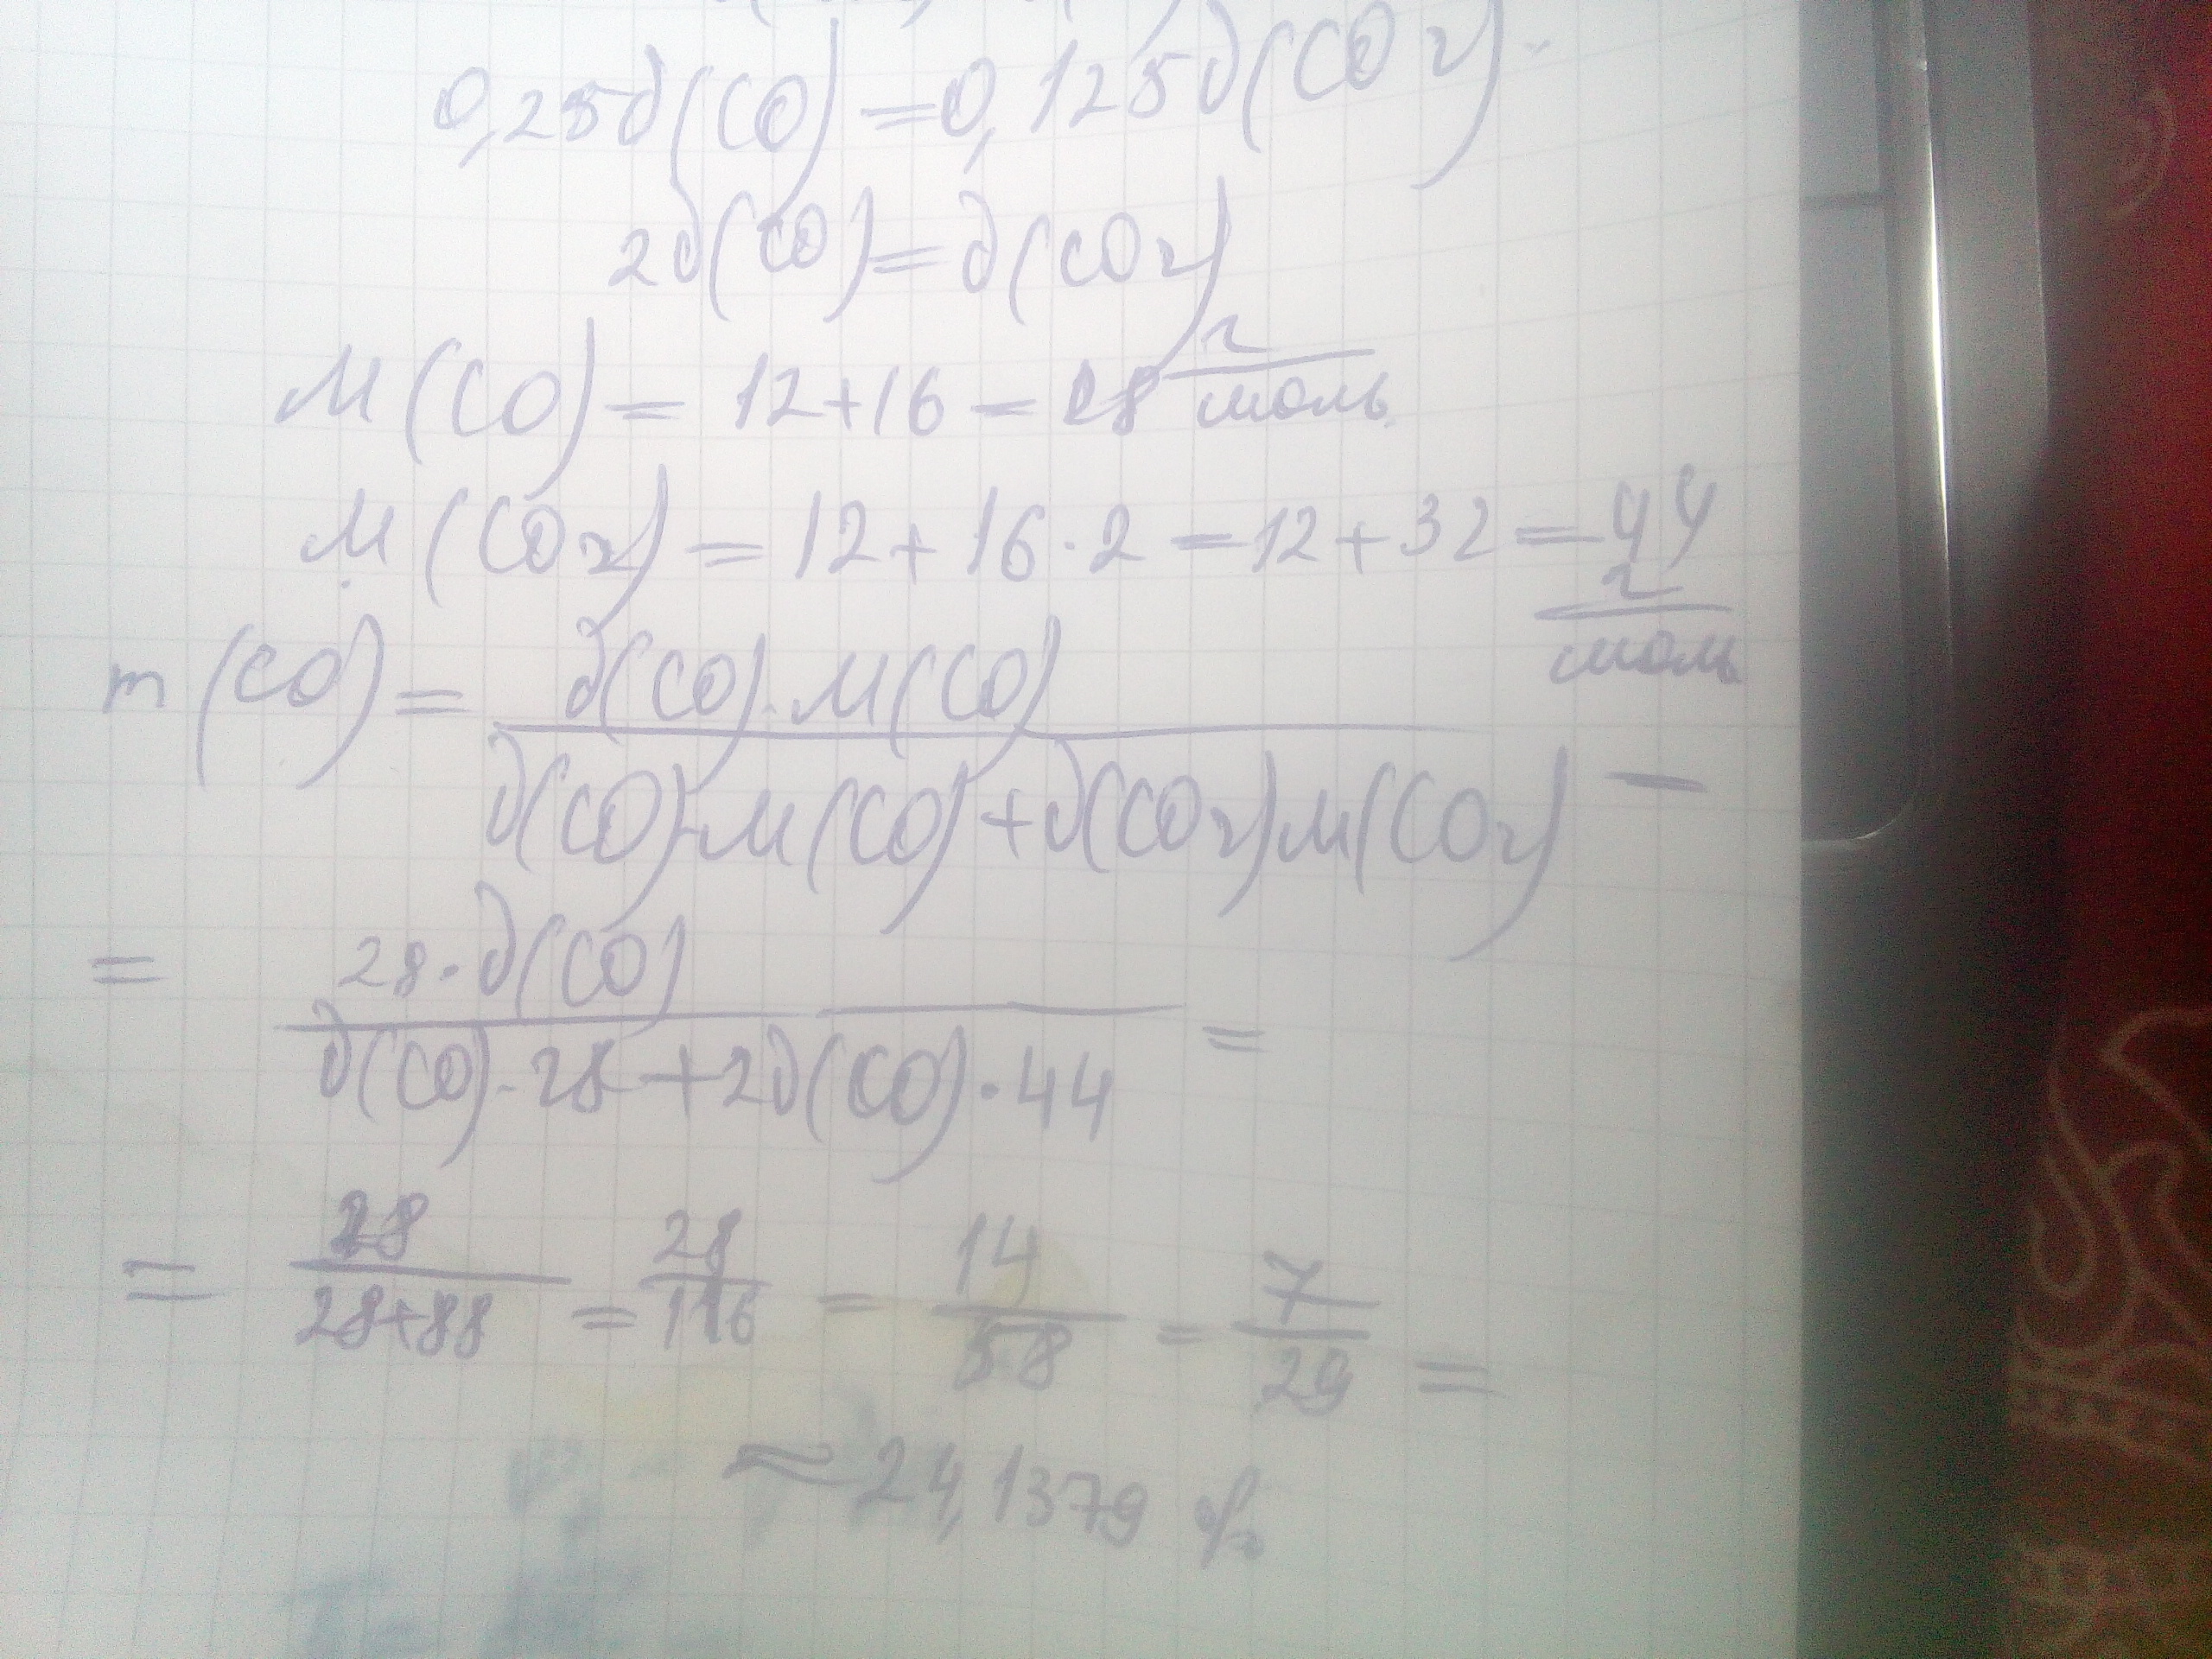 0,25∂(CO) = 0,125∂(CO₂)
2∂(CO) = ∂(CO₂)
M(CO) = 12+16 = 28 г/моль
M(CO₂) = 12+16·2 = 12+32 = 44 г/моль
m(CO) = ∂(CO)·M(CO) / ∂(CO)·M(CO)+∂(CO₂)M(CO₂) =
= 28·∂(CO) / ∂(CO)·28+2∂(CO)·44 =
= 28/28+88 = 28/116 = 14/58 = 7/29 =
≈ 24,1379 %